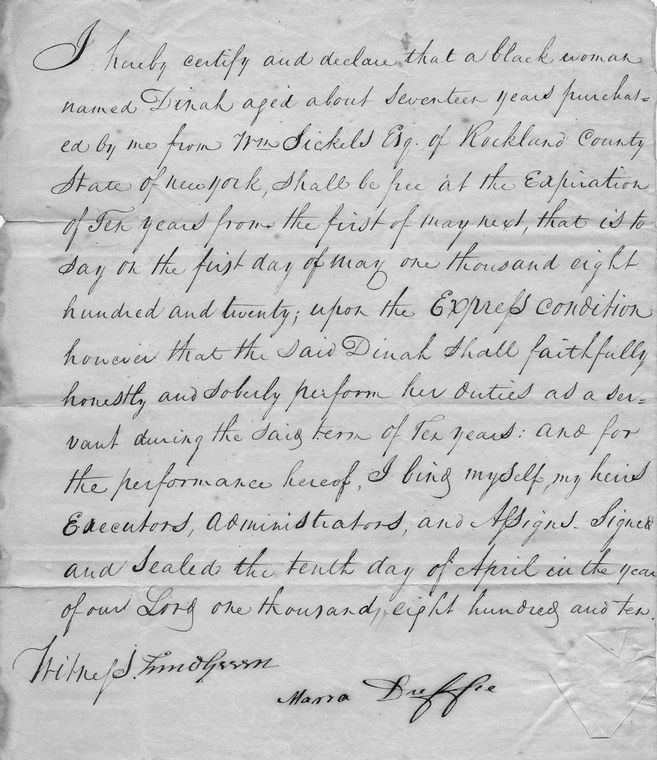 I hereby certify and declare that a black woman
named Dinah aged about seventeen years purchas=
ed by me from Wm Sickels Esq. of Rockland County
State of new york, shall be free at the Expiration
of Ten years from the first of may next, that is to
say on the first day of may one thousand eight
hundred and twenty; upon the Express condition
however that the said Dinah shall faithfully
honestly and soberly perform her duties as a ser=
vant during the said term of Ten years: and for
the performance hereof, I bind myself, my heirs
Executors, administrators, and Assigns. Signed
and Sealed the tenth day of April in the year
of our Lord one thousand, eight hundred and ten.
Witness.
Maria